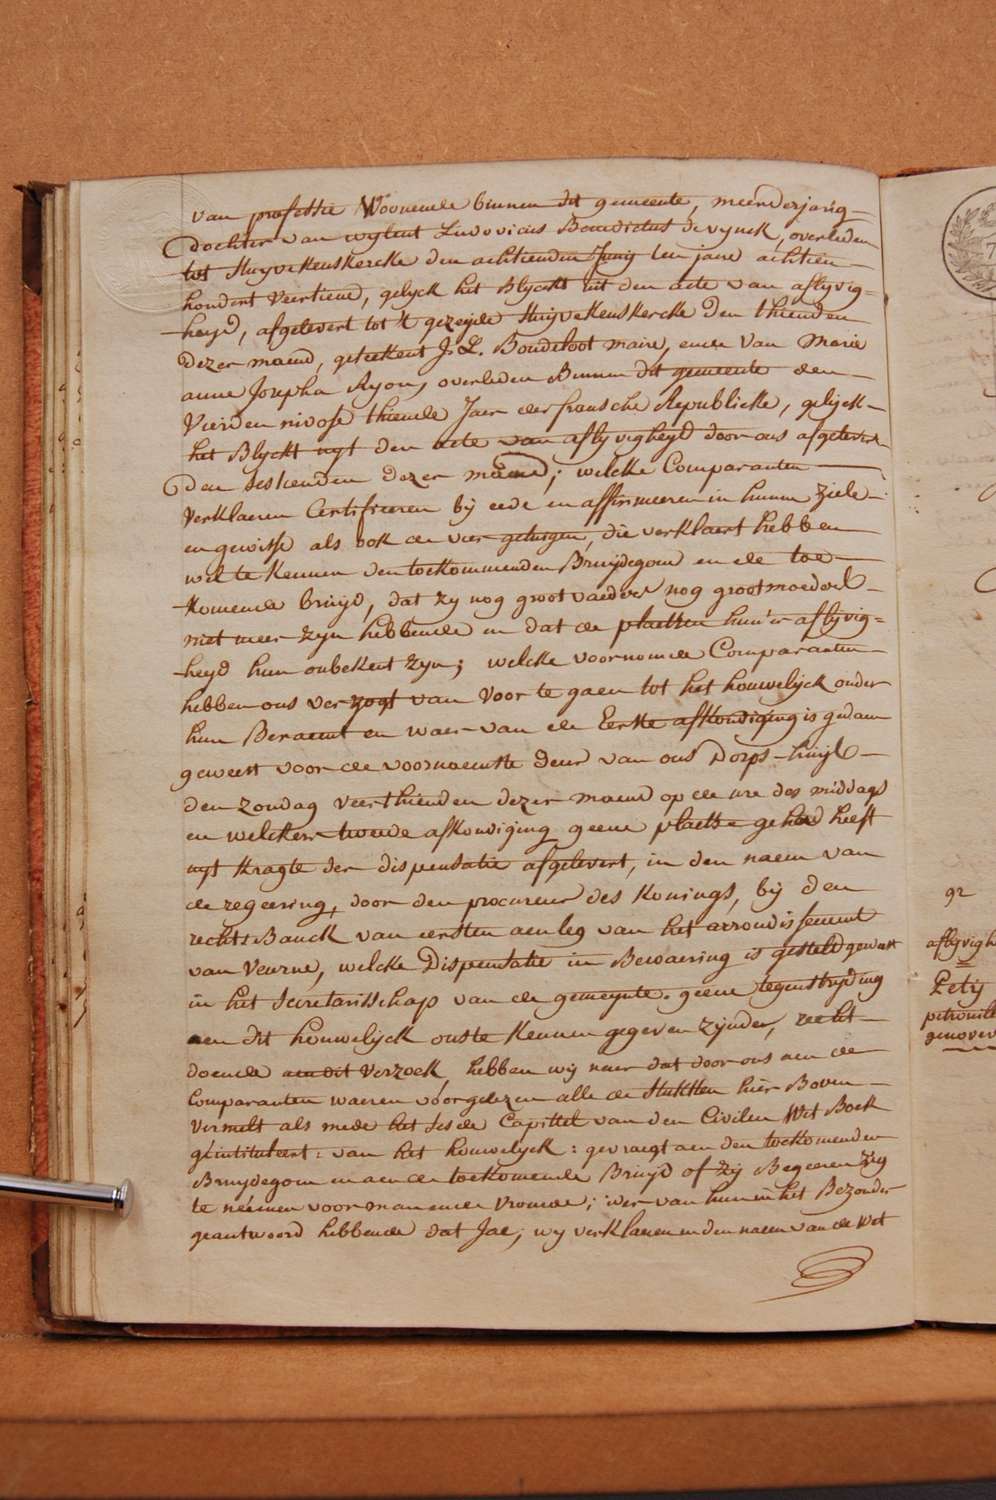 van professie Woonende binnen dit gemeente, meerderjarig-
dochter van wylent Ludovicus Benedictus devynck, overleden
tot Stuyvekenskercke den achtienden Junij een jare achtien-
hondert veertiend, gelyck het Blyckt uit den acte van aflyvig=
heyd, afgelevert tot 't gezeyde Stuyvekenskercke den thienden
dezer maend, geteekent J: L. Boudeloot maire, ende van Marie
anne Josepha Ryon, overleden Binnen dit gemeente den-
Vierden nivose thiende Jaer der fransche Republicke, gelyck-
het Blyckt uyt den acte van aflyvigheyd door ons afgelevert
den seskenden dezer maend; welcke Comparanten
Verklaeren Certifieeren bij eede en affirmeeren in hunne ziele-
en gewisse als ook de vier getuigen, die verklaert hebben
wel te kennen den toekommenden Bruydegom en de toe-
komende bruyd, dat zy nog grootvaeder nog grootmoeder-
niet meer zyn hebbende en dat de plaetsen hun'er aflyvig=
heyd hun onbekent zyn; welcke voornomde Comparanten
hebben ons verzogt van voor te gaen tot het houwelyck onder
hun Beraemt en waer van de Eerste afkondiging is gedaen
geweest voor de voornaemste deur van ons Dorps-huys-
den zondag veerthienden dezer maend op de ure des middags
en welckers tweede afkondiging geene plaetse gehad heeft
uyt kragte der dispensatie afgelevert, in den naem van
de regeering, door den procureur des Konings, bij den
rechts-Banck van eersten aenleg van het arrondissement
van Veurne, welcke Dispensatie in Bewaering is gesteld geweest
in het secretarisschap van de gemeynte. geene tegenstryding
aen dit houwelyck onste kennen gegeven zynde, recht-
doende aen dit verzoek, hebben wij naer dat door ons aen de
Comparanten waeren vóorgelezen alle de stukken hier Boven-
vermelt als mede het sesde Capittel van den Civilen Wet Boek
géintituleert: van het houwelyck: gevraegt aen den toekomenden
Bruydegom en aen de toekomende Bruyd of zij Begeeren zig
te néémen voor man ende vrouwe; ider van hun in het Bezonder
geantwoord hebbende dat Jae; wy verklaeren in den naem van de Wet
92
aflyvigh
Petij
petronill
genovev